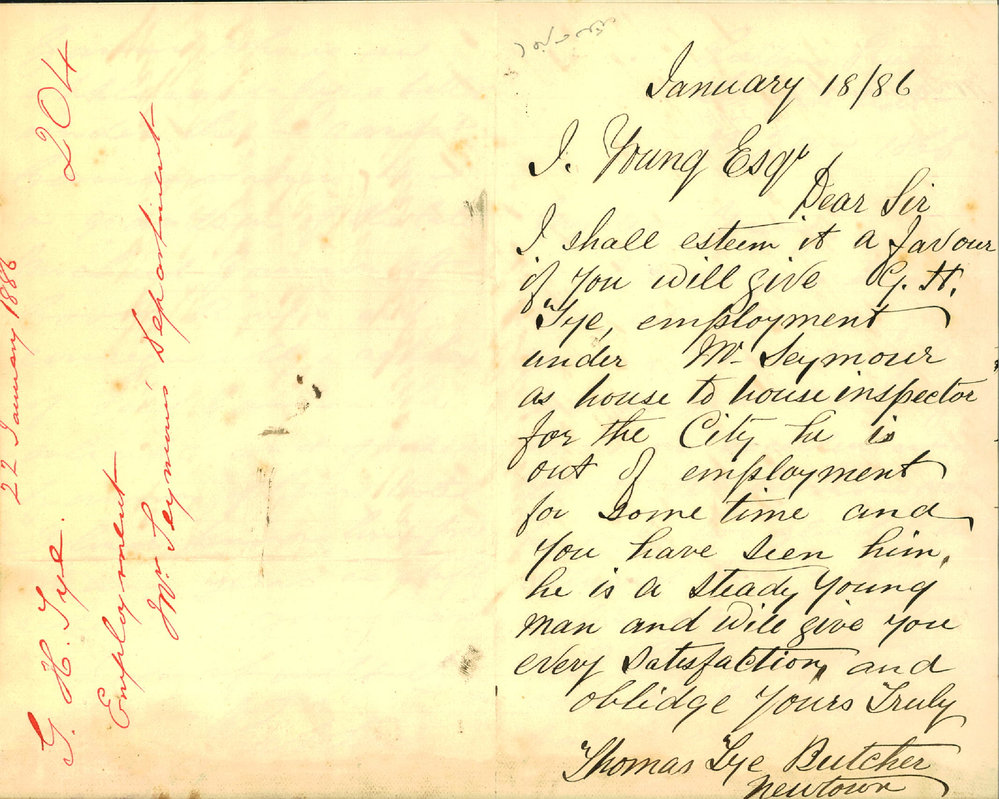 January 18/86
J. Young Esqr
Dear Sir
I shall esteem it a favour
if you will give G. H.
Tye, employment
under Mr Seymour
as house to house inspector
for the City he is
out of employment
for some time and
you have seen him,
he is a steady young
man and will give you
every satisfaction, and
oblidge yours Truly
Thomas Tye Butcher
Newtown
G. H. Tye.
22 January 1886
204
Employment
Mr Seymour's Department